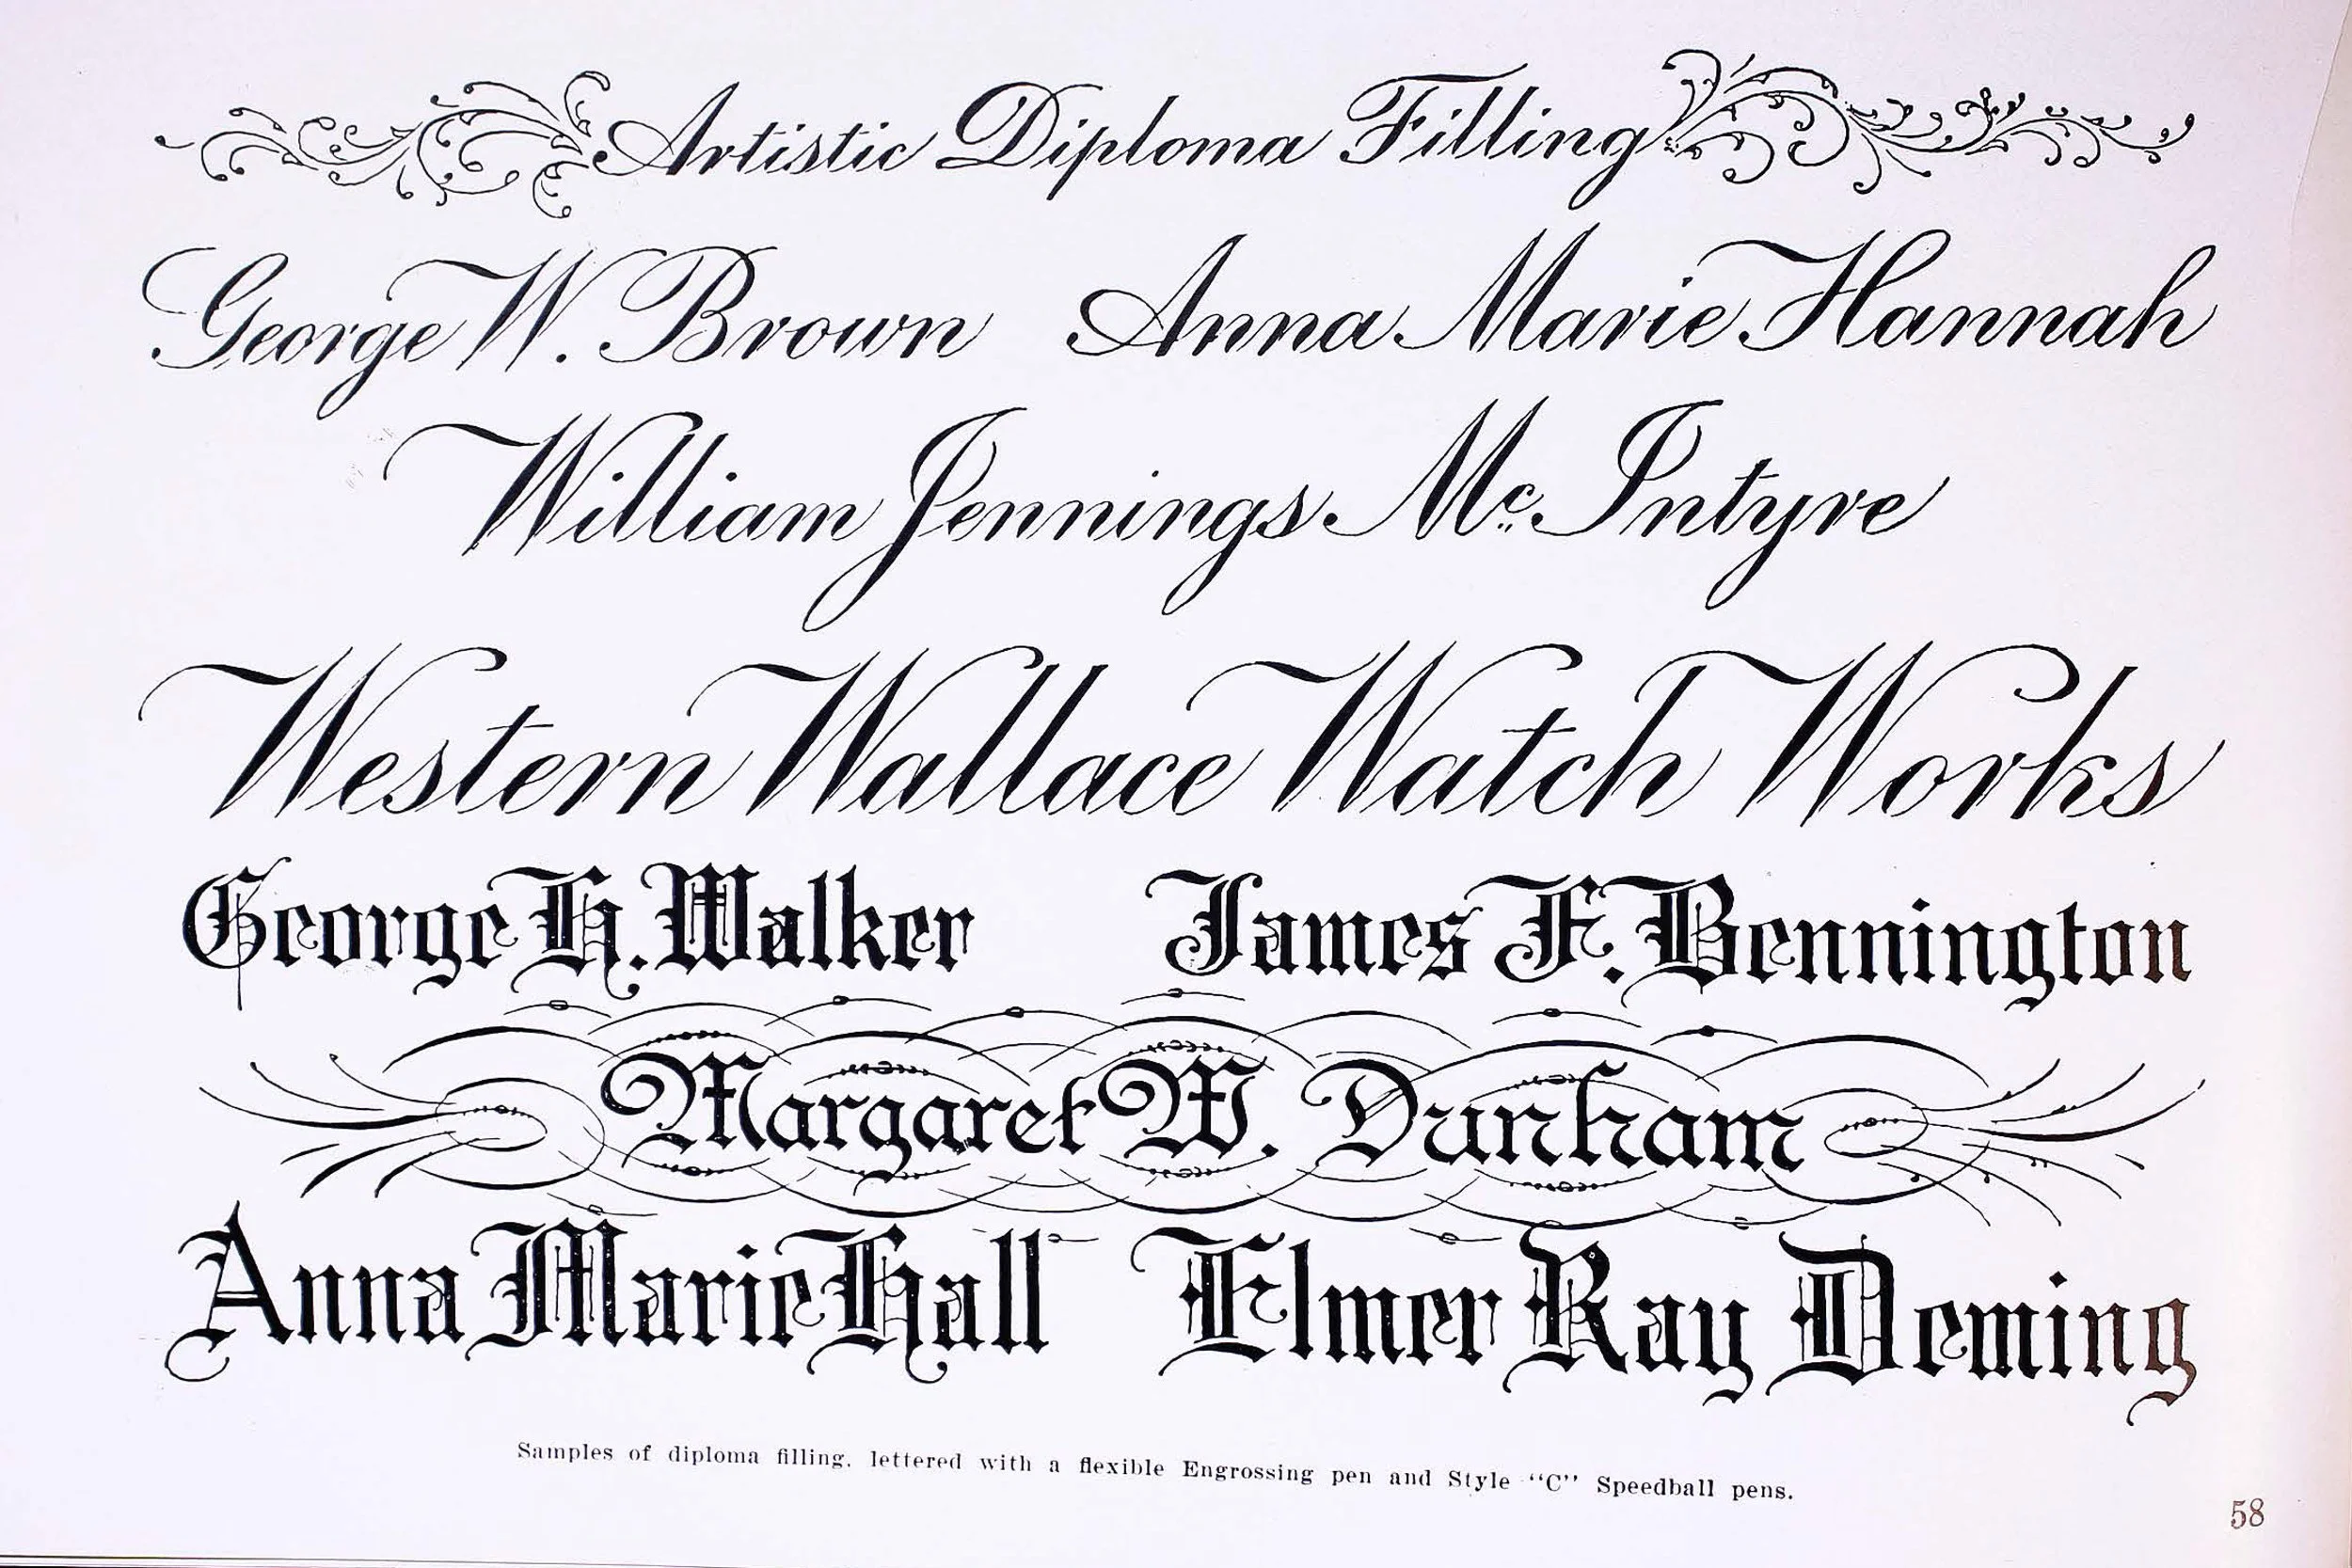 Artistic Diploma Filling
George W. Brown Anna Marie Hannah
William Jennings Mc Intyre
Western Wallace Watch Works
George H. Walker James F. Bennington
Margaret W. Dunham
Anna Marie Hall Elmer Ray Deming
Samples of diploma filling, lettered with a flexible Engrossing pen and Style "C" Speedball pens.
58